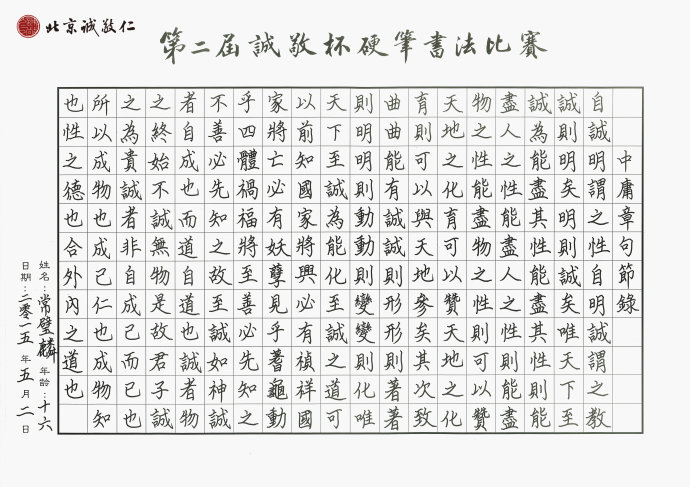 北京诚敬仁
第二屆誠敬杯硬筆書法比賽
中庸章句節錄
自誠明謂之性自明誠謂之教
誠則明矣明則誠矣唯天下至
誠為能盡其性能盡其性則能
盡人之性能盡人之性則能盡
物之性能盡物之性則可以贊
天地之化育可以贊天地之化
育則可以與天地參矣其次致
曲曲能有誠誠則形形則著著
則明明則動動則變變則化唯
天下至誠為能化至誠之道可
以前知國家將興必有禎祥國
家將亡必有妖孽見乎蓍龜動
乎四體禍福將至善必先知之
不善必先知之故至誠如神誠
者自成也而道自道也誠者物
之終始不誠無物是故君子誠
之為貴誠者非自成己而已也
所以成物也成己仁也成物知
也性之德也合外內之道也
姓名:常璧麟 年齡:十六
日期:二零一五年五月二日